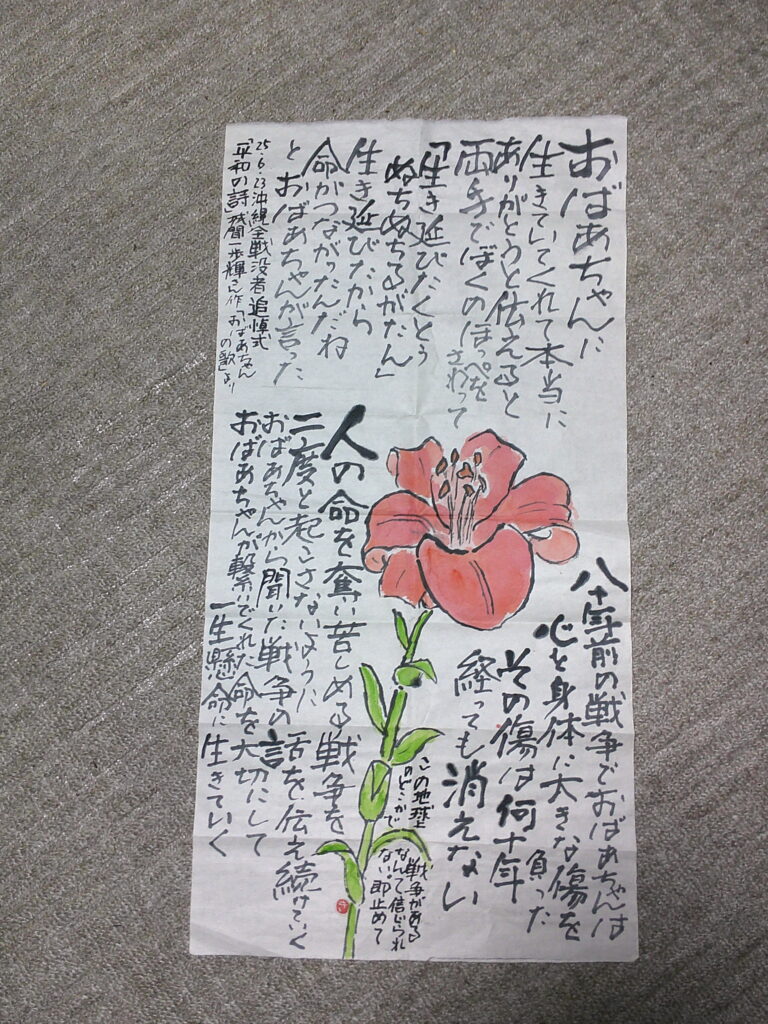 おばあちゃんに
生きていてくれて本当に
ありがとうと伝えると
両手でぼくのほっぺを
さわって
「生き延びたくとぅ
ぬちぬちるがたん」
生き延びたから
命がつながったんだね
とおばあちゃんが言った
八十年前の戦争でおばあちゃんは
心と身体に大きな傷を
負った
その傷は何十年
経っても消えない
人の命を奪い苦しめる戦争を
二度と起こさないように
おばあちゃんから聞いた戦争の
話を伝え続けていく
おばあちゃんが繋いでくれた命を大切にして
一生懸命に生きていく
25.6.23沖縄全戦没者追悼式
「平和の詩」城間一歩輝さん作「おばあちゃん
の歌」より
この地球
のどこかで
戦争がある
なんて信じられ
ない。即止めて